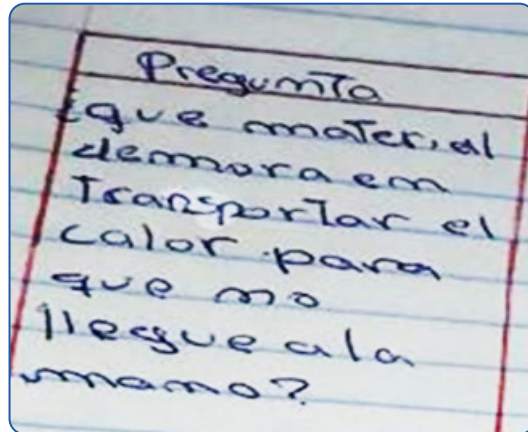 Pregunta
¿que material
demora en
Transportar el
calor para
que no
llegue a la
mano?